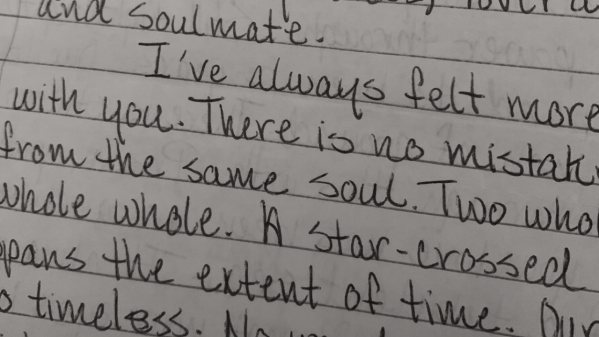 and soulmate.
I've always felt more
with you. There is no mistak
from the same soul. Two who
whole whole. A star-crossed
pans the extent of time. Our
timeless. No